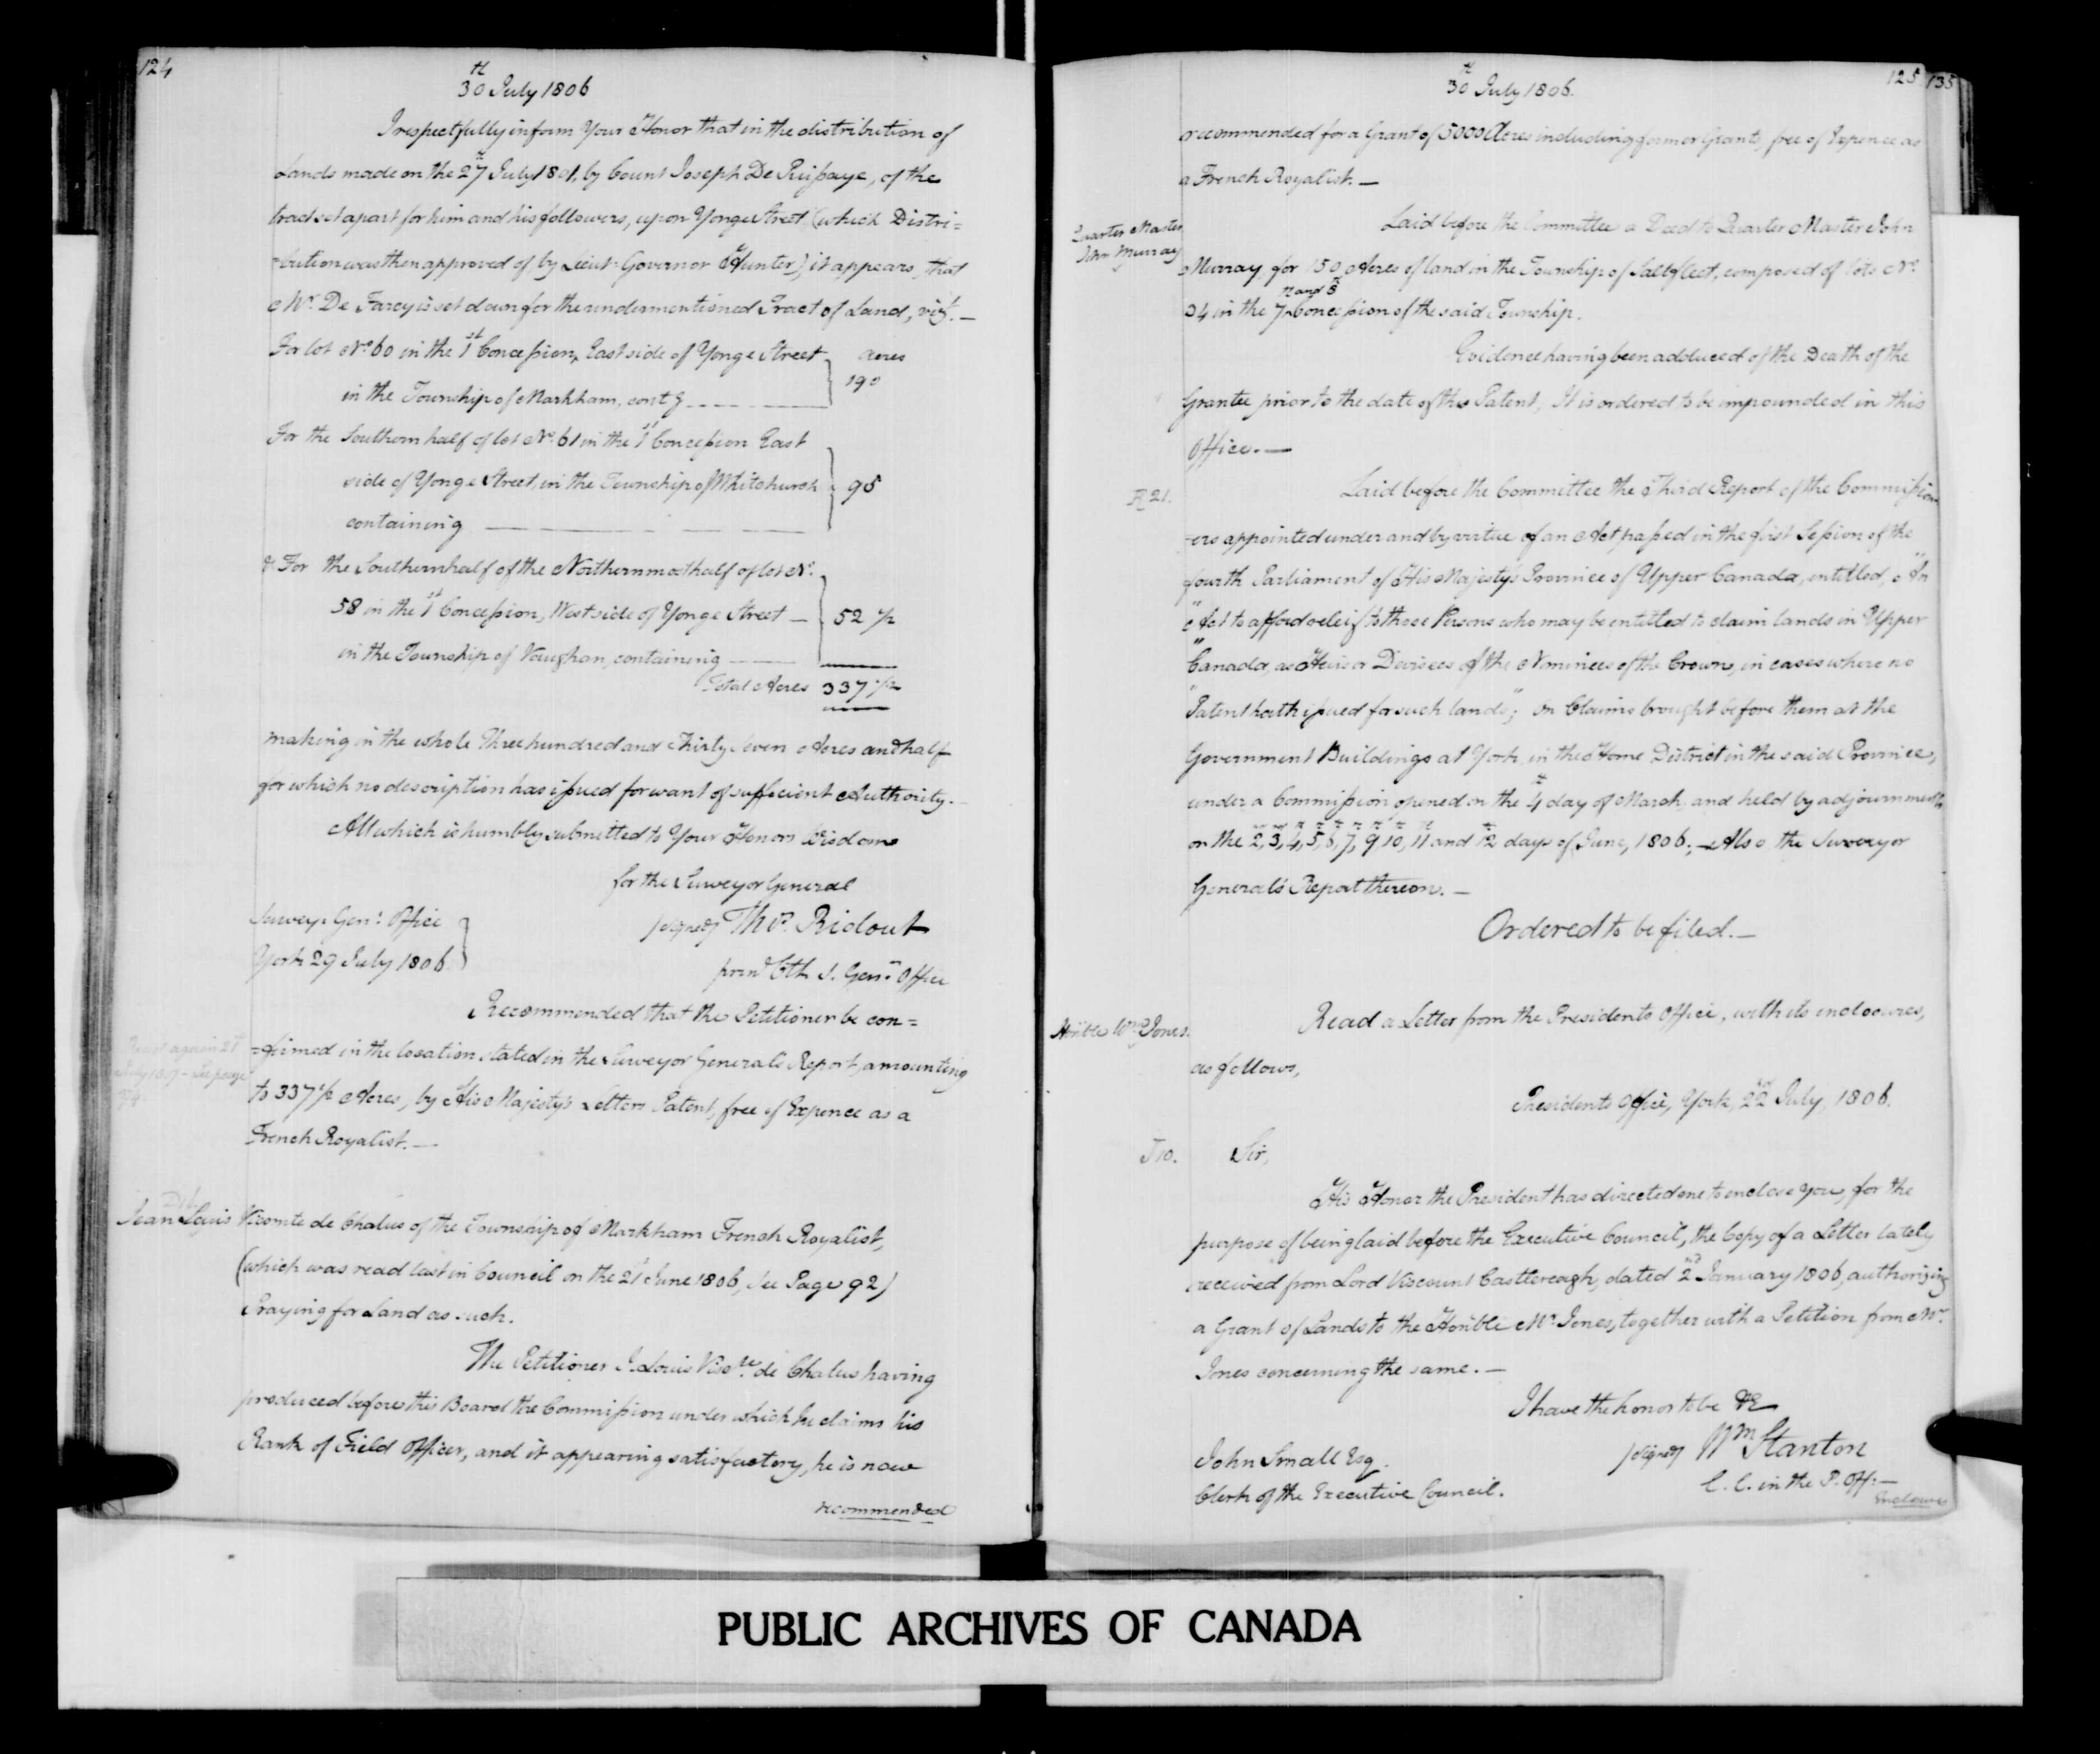 124
30th July 1806
I respectfully inform Your Honor that in the distribution of
Lands made on the 27th July 1801, by Count Joseph De Puisaye, of the
tract set apart for him and his followers, upon Yonge Street (which Distri=
=bution was then approved of by Lieut. Governor Hunter) it appears, that
Mr. De Farcy is set down for the undermentioned Tract of Land, vizt.—
For lot No. 60 in the 1st Concession, East side of Yonge Street acres
in the Township of Markham, contg 190
For the Southern half of lot No. 61 in the 1st Concession East
side of Yonge Street, in the Township of Whitchurch 95
containing
& For the Southern half of the Northernmost half of lot No.
58 in the 1st Concession, West side of Yonge Street — 52 1/2
in the Township of Vaughan, containing
Total Acres 337 1/2
making in the whole Three hundred and Thirty Seven Acres and half
for which no description has issued for want of sufficient Authority.—
All which is humbly submitted to Your Honors Wisdom
for the Surveyor General
Survey. Genl. Office signed Thos. Ridout
York 29 July 1806 Clk S. Genls Office
Recommended that the Petitioner be con=
=firmed in the location stated in the Surveyor Generals Report, amounting
to 337 1/2 Acres, by His Majesty's Letters Patent, free of Expence as a
French Royalist.—
Read again 21st
July 1807 - See page
Jean Louis Vicomte de Chalus of the Township of Markham French Royalist,
(which was read last in Council on the 21st June 1806, See Page 92)
Praying for Land as such.
The Petitioner J. Louis Viscte de Chalus having
produced before this Board the Commission under which he claims his
Rank of Field Officer, and it appearing satisfactory, he is now
recommended
125 135
30th July 1806.
recommended for a Grant of 5000 Acres including former Grants, free of Expence as
a French Royalist.—
Quarter Master
John Murray
Laid before the Committee a Deed to Quarter Master John
Murray for 150 Acres of land in the Township of Saltfleet, composed of lots No.
34 in the 7th and 8th Concession of the said Township.
Evidence having been adduced of the Death of the
Grantee prior to the date of this Patent, It is ordered to be impounded in this
Office.—
R 21.
Laid before the Committee the Third Report of the Commission
=ers appointed under and by virtue of an Act passed in the first Session of the
fourth Parliament of His Majesty's Province of Upper Canada, entitled, "An
"Act to afford releif to those Persons who may be entitled to claim lands in Upper
"Canada, as Heirs or Devisees of the Nominees of the Crown, in cases where no
"Patent hath issued for such lands"; on Claims brought before them at the
Government Buildings at York, in the Home District in the said Province,
under a Commission opened on the 4th day of March, and held by adjournments
on the 2nd, 3rd, 4th, 5th, 6th, 7th, 9th, 10th, 11th and 12th days of June, 1806.;— Also the Surveyor
General's Report thereon.—
Ordered to be filed.—
Honble Wm Jones.
Read a Letter from the Presidents Office, with its enclosures,
as follows,
Presidents Office, York, 22nd July, 1806.
J 10. Sir,
His Honor the President has directed me to enclose you, for the
purpose of being laid before the Executive Council, the Copy of a Letter lately
received from Lord Viscount Castlereagh, dated 2nd January 1806, authorizing
a Grant of Lands to the Honble Mr Jones, together with a Petition from Mr.
Jones concerning the same.—
I have the honor to be &c
signed Wm Stanton
John Small Esq. C. C. in the P. Off:—
Clerk of the Executive Council.
Enclosure
PUBLIC ARCHIVES OF CANADA